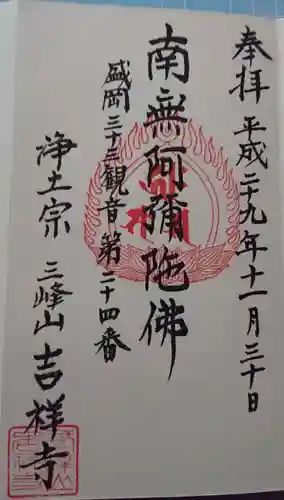 奉拝 平成二十九年十一月三十日
南無阿彌陀佛
盛岡三十三観音第二十四番
浄土宗 三峰山 吉祥寺